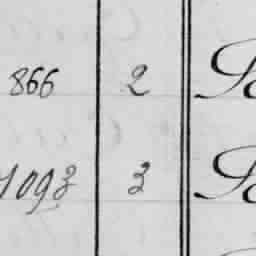 866 2
1093 3